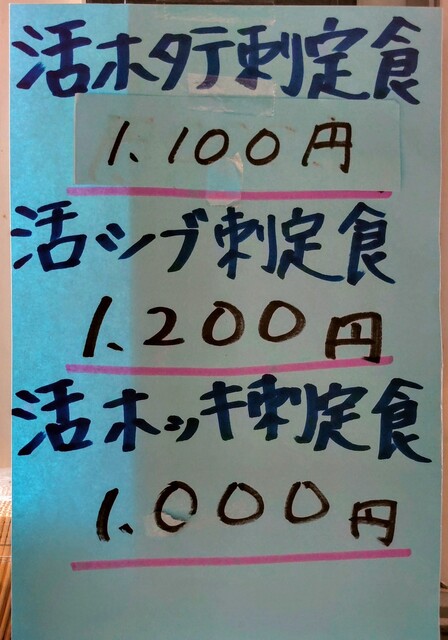 活ホタテ刺定食
1.100円
活ツブ刺定食
1.200円
活ホッキ刺定食
1.000円